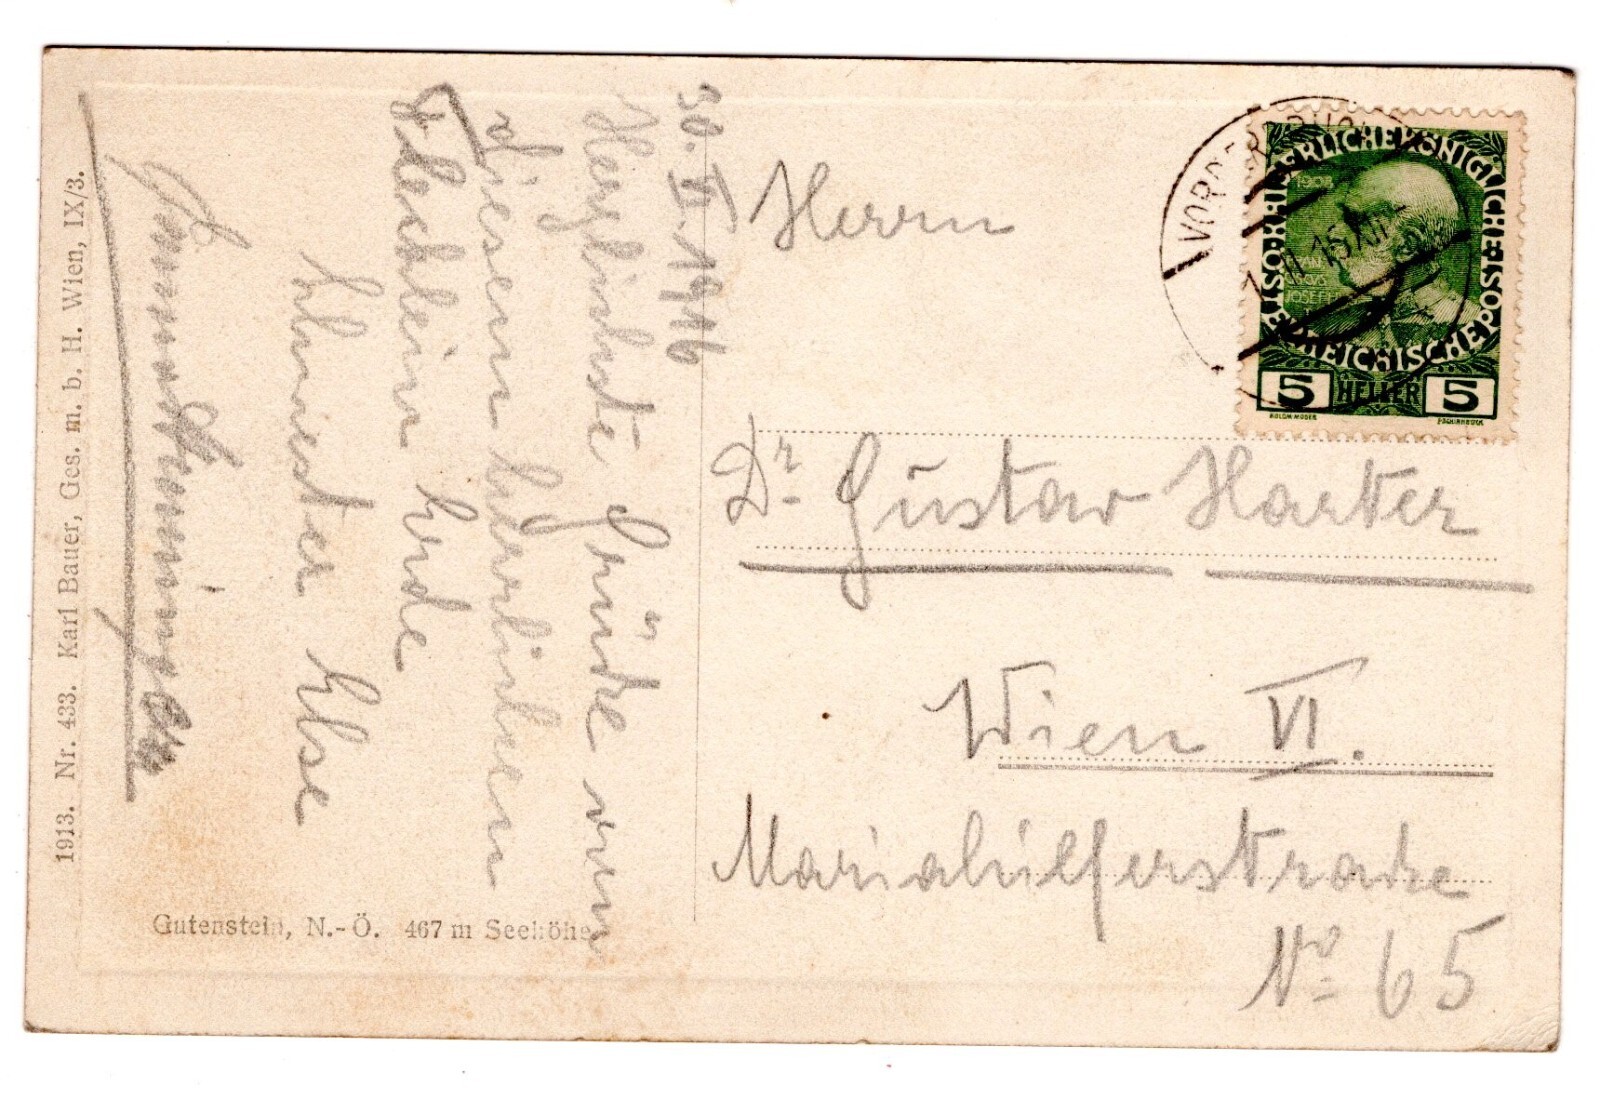 30. VI. 1916
Herzlichste Grüße von
diesem lieblichen
Fleckchen Erde
Schwester Else
Herrn
Dr. Gustav Harter
Wien VI.
Mariahilferstraße
No 65
K.K. ÖSTERREICHISCHE POST KAISERLICHE KÖNIGLICHE
1908
JOSEF I
5 HELLER 5
KOLOM. MOSER
F. SCHIRNBÖCK
VORDERBRUCK
Gutenstein, N.-Ö. 467 m Seehöhe
1913. Nr. 433. Karl Bauer, Ges. m. b. H. Wien, IX/3.